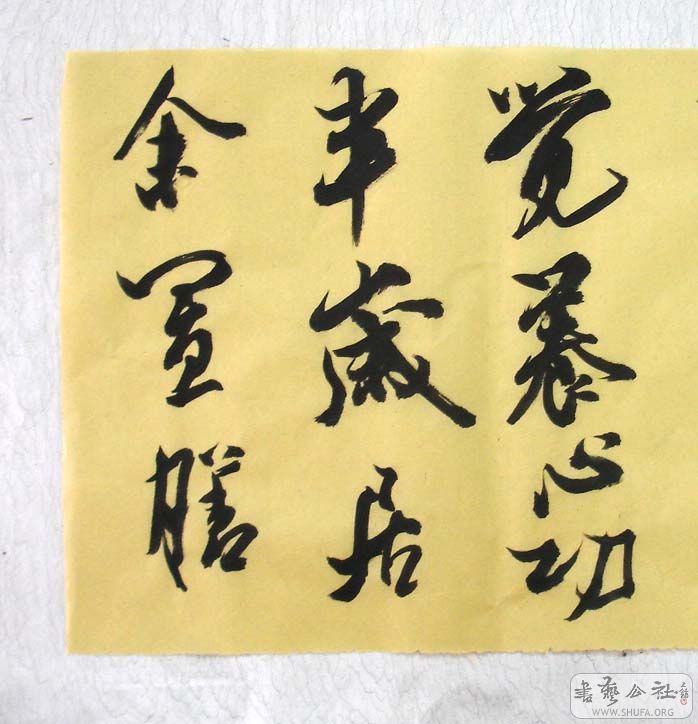 觉養心功
半歲居
余置膳
書藝公社
WWW.SHUFA.ORG